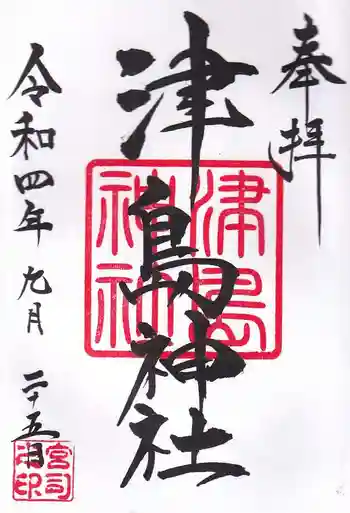 奉拝
津島神社
津島
神社
令和四年九月二十五日
宮司
之印